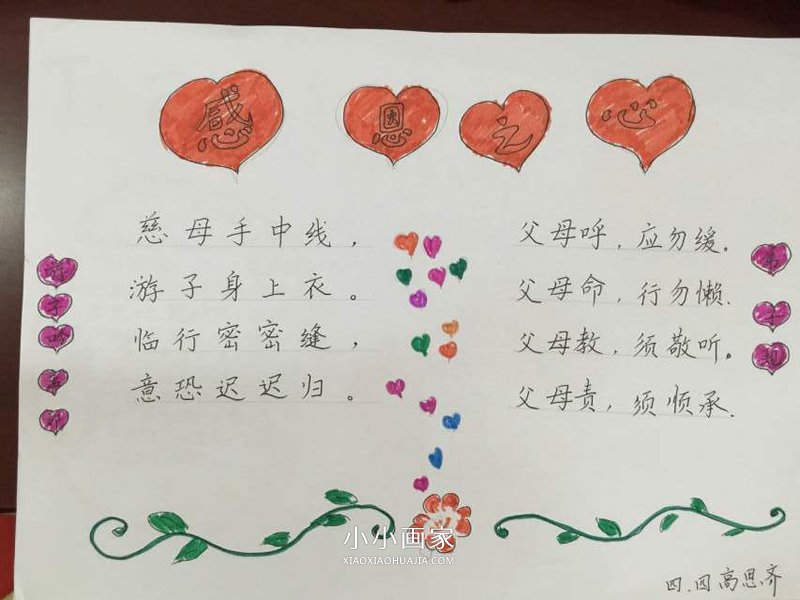 感恩之心
慈母手中线，
游子身上衣。
临行密密缝，
意恐迟迟归。
游子吟孟郊
父母呼，应勿缓。
父母命，行勿懒.
父母教，须敬听。
父母责，须顺承.
弟子规
小小画家
XIAOXIAOHUAJIA.COM
四.四高思齐